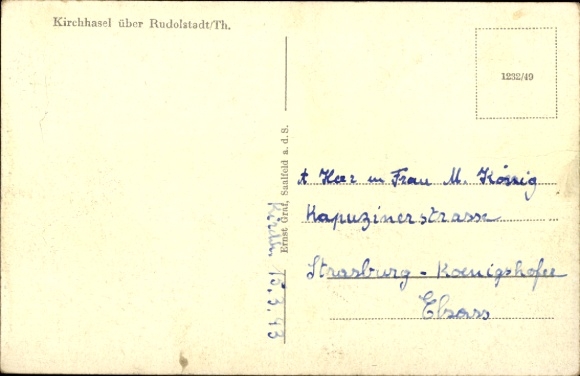 Kirchhasel über Rudolstadt/Th.
1232/49
Ernst Graf, Saalfeld a.d.S.
Herr u Frau M. König
Kapuzinerstrasse
Strasburg - Koenigshofen
Elsass
15.3.43